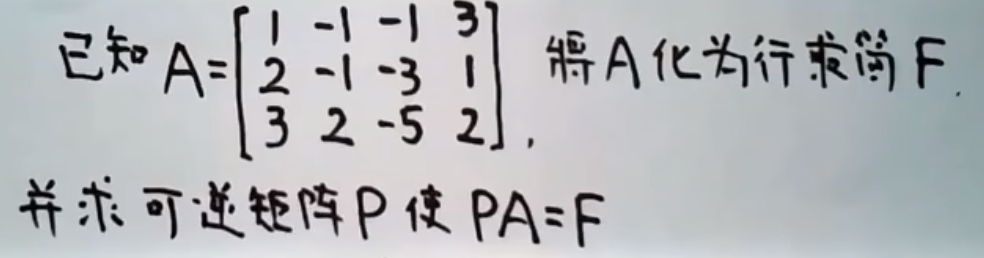 已知 A=[1 -1 -1 3
2 -1 -3 1
3 2 -5 2], 将A化为行最简F.
并求可逆矩阵P使PA=F